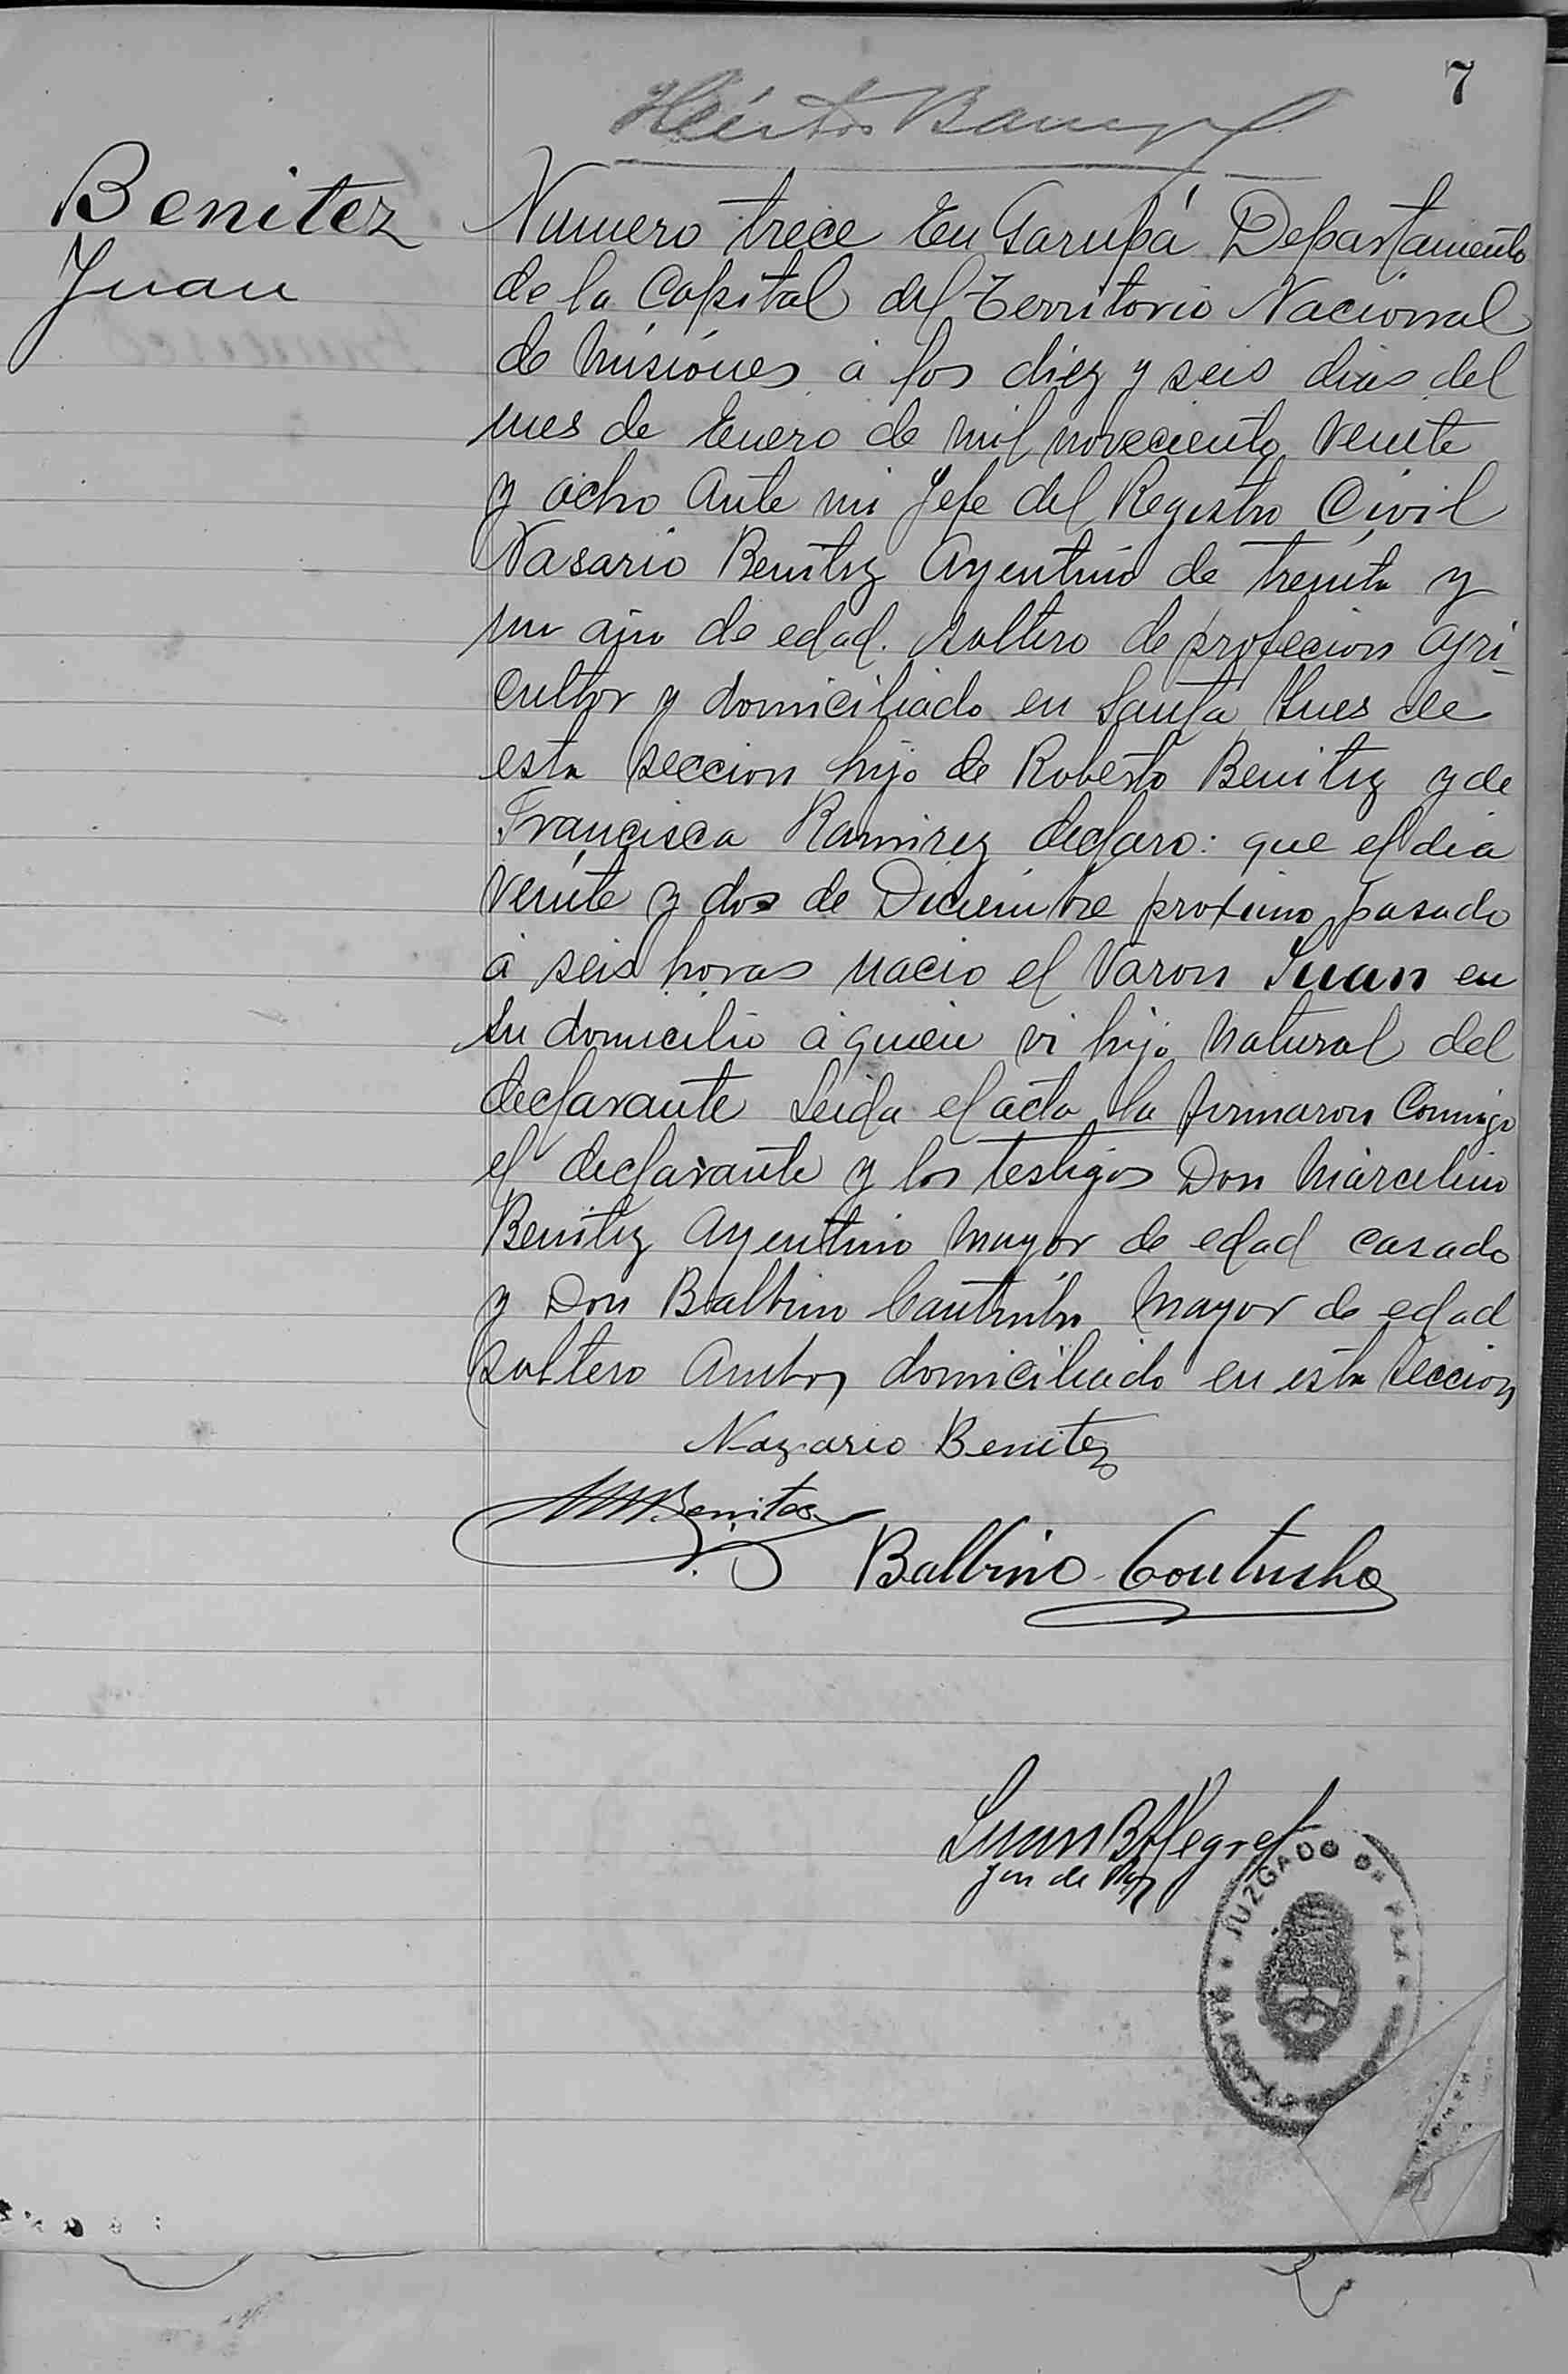 7
Benitez
Juan
Numero trece En Garupá Departamento
de la Capital del Territorio Nacional
de Misiónes á los diez y seis dias del
mes de Enero de mil noveciento veinte
y ocho Ante mi Jefe del Registro Civil
Nasario Benitez Argentino de treinta y
un año de edad. soltero de profecion agri-
cultor y domiciliado en Santa Ines de
esta seccion hijo de Roberto Benitez y de
Francisca Ramirez declaro: que el dia
veinte y dos de Diciembre proximo pasado
á seis horas nacio el Varon Juan en
su domicilio á quien vi hijo natural del
declarante Leida el acta la firmaron Conmigo
el declarante y los testigos Don Marcelino
Benitez Argentino mayor de edad casado
y Don Balbino mayor de edad
soltero Ambos domiciliado en esta seccion
Nazario Benitez
M Benitez
Balbino
Juan B Alegre
Juez de Paz
JUZGADO DE PAZ